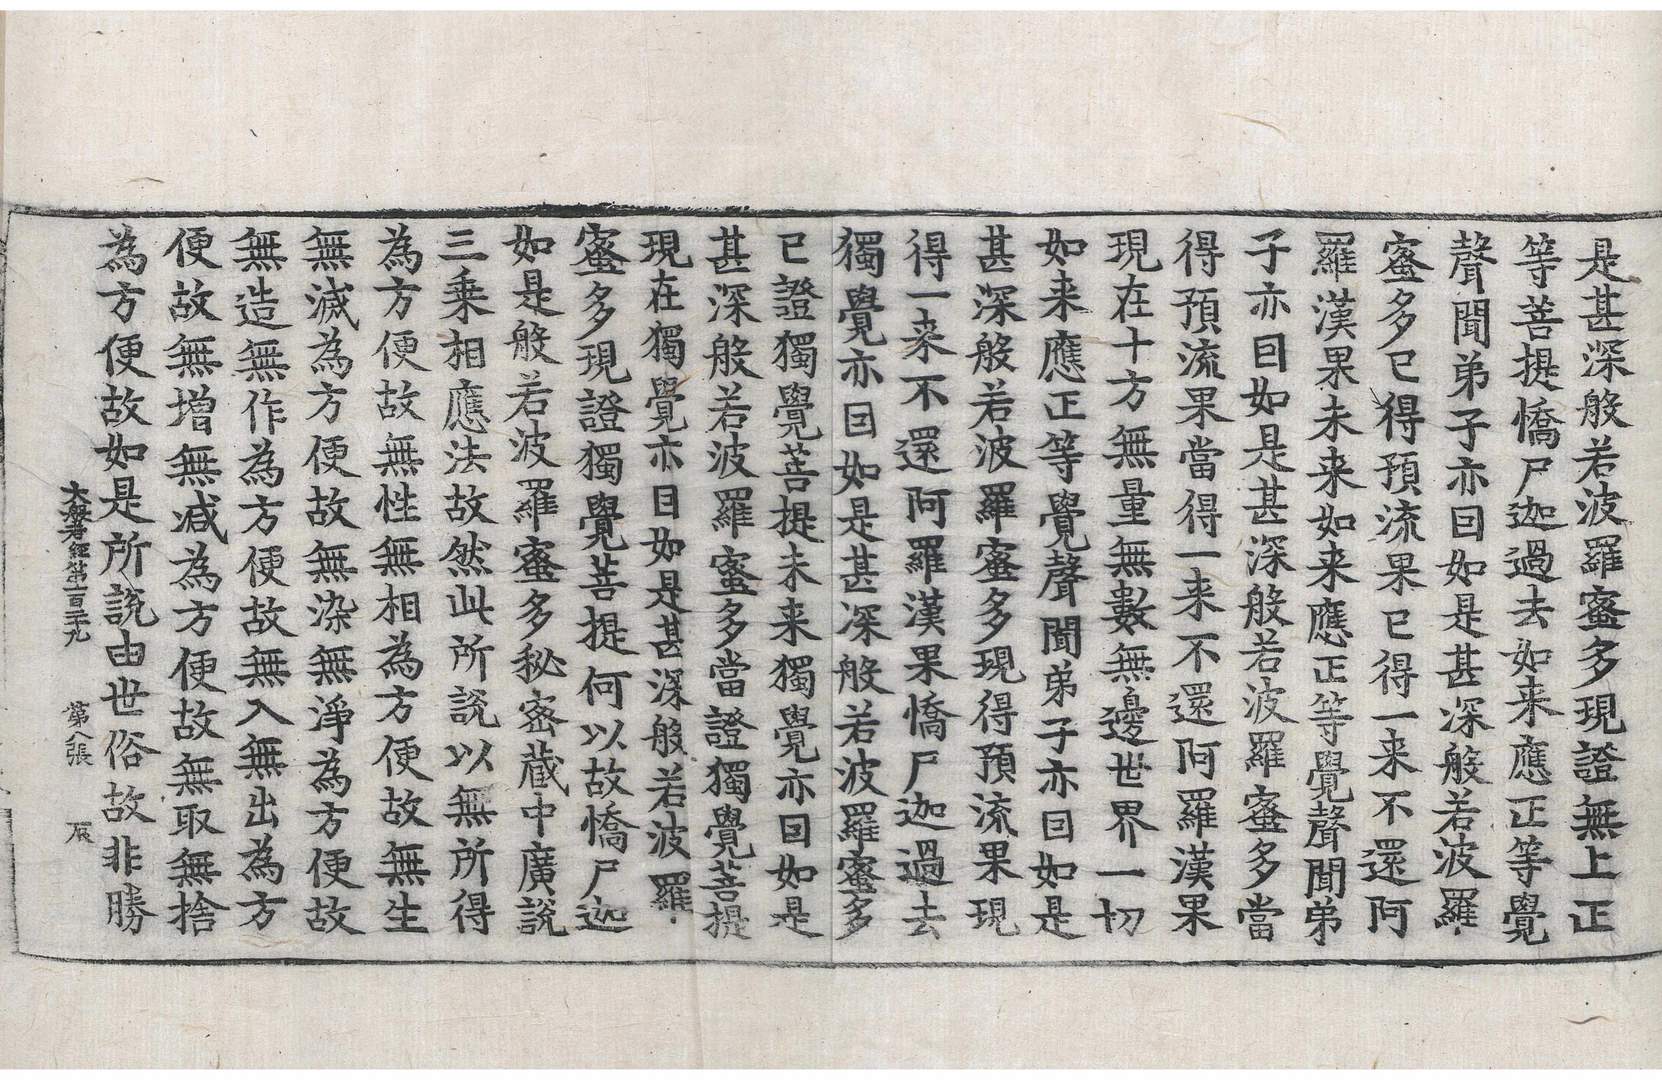 是甚深般若波羅蜜多現證無上正
等菩提憍尸迦過去如来應正等覺
聲聞弟子亦曰如是甚深般若波羅
蜜多已得預流果已得一来不還阿
羅漢果未来如来應正等覺聲聞弟
子亦曰如是甚深般若波羅蜜多當
得預流果當得一来不還阿羅漢果
現在十方無量無數無邊世界一切
如来應正等覺聲聞弟子亦曰如是
甚深般若波羅蜜多現得預流果現
得一来不還阿羅漢果憍尸迦過去
獨覺亦曰如是甚深般若波羅蜜多
已證獨覺菩提未来獨覺亦曰如是
甚深般若波羅蜜多當證獨覺菩提
現在獨覺亦曰如是甚深般若波羅
蜜多現證獨覺菩提何以故憍尸迦
如是般若波羅蜜多秘密藏中廣說
三乗相應法故然此所說以無所得
為方便故無性無相為方便故無生
無滅為方便故無染無淨為方便故
無造無作為方便故無入無出為方
便故無增無减為方便故無取無捨
為方便故如是所說由世俗故非勝
大般若經第一百二十九 第八張 辰